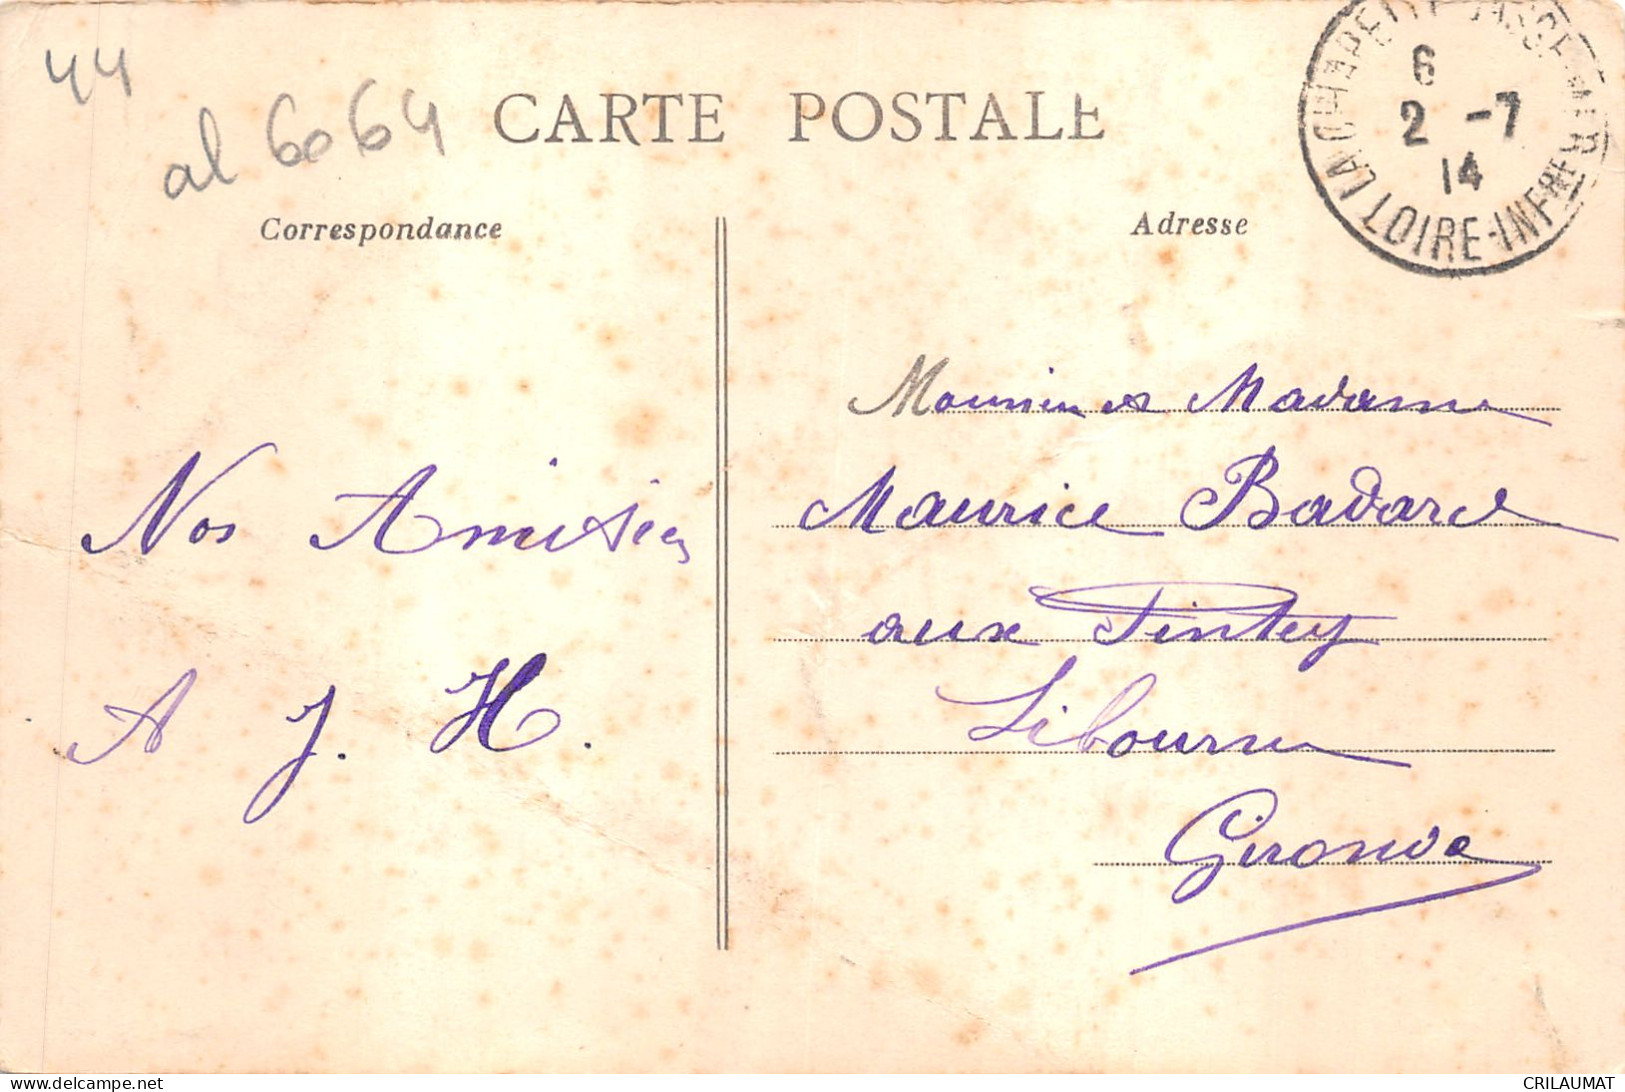 44
al 6064
CARTE POSTALE
LA CHAPELLE-BASSE-MER
6
2 -7
14
LOIRE-INFRE
Correspondance
Adresse
Nos Amitiés
A J. H.
Monsieur et Madame
Maurice Badard
aux
Libourne
Gironde
CRILAUMAT